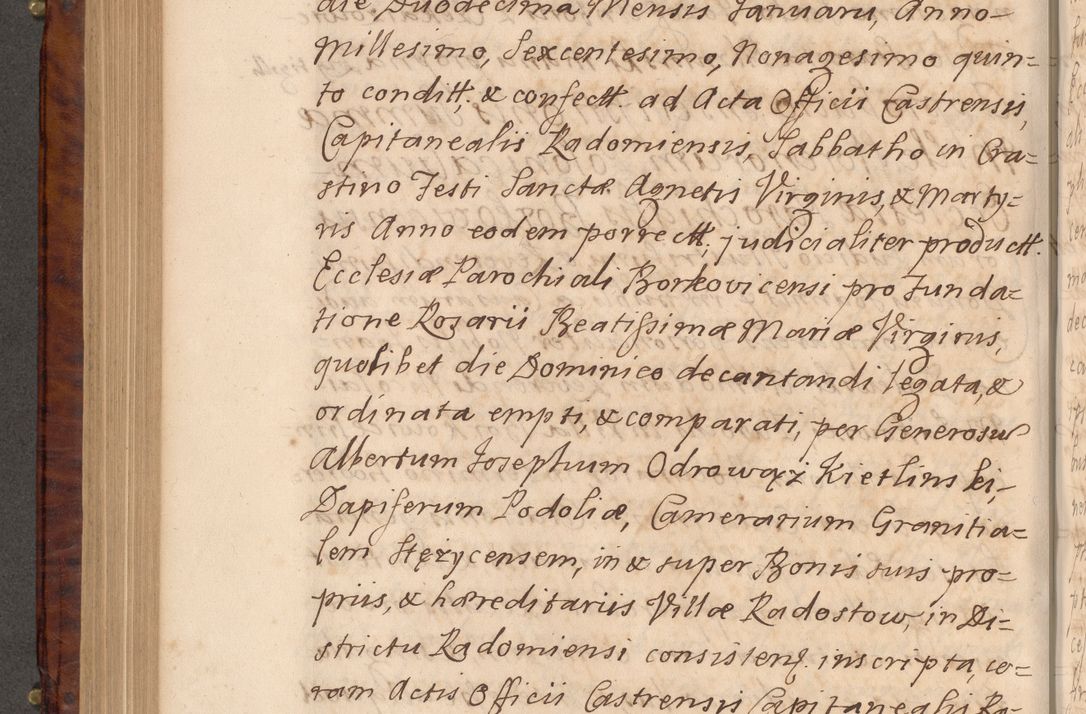 die Duodecima Mensis Januarii, Anno
Millesimo, Sexcentesimo, Nonagesimo quin=
to conditt, & confectt. ad Acta Officii Castrensis,
Capitanealis Radomiensis Sabbatho in Cra=
stino Festi Sanctæ Agnetis Virginis, & Marty=
ris Anno eodem porrectt, judicialiter productt.
Ecclesiæ Parochiali Borkovicensi pro Funda=
tione Rozarii Beatissimæ Mariæ Virginis,
quolibet die Dominico decantandi legata, &
ordinata empti, & comparati, per Generosū
Albertum Josephum Odrowąż Kietlinski,
Dapiferum Podoliæ, Camerarium Granitia=
lem Stężycensem, in & super Bonis suis pro=
priis, & hæreditariis Villæ Radostow, in Di=
strictu Radomiensi consisten. inscripta, co=
ram Actis Officii Castrensis Capitanealis Ra=